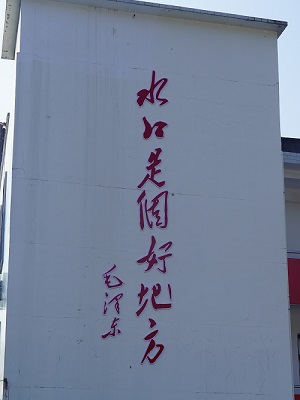 水口是個好地方
毛泽东